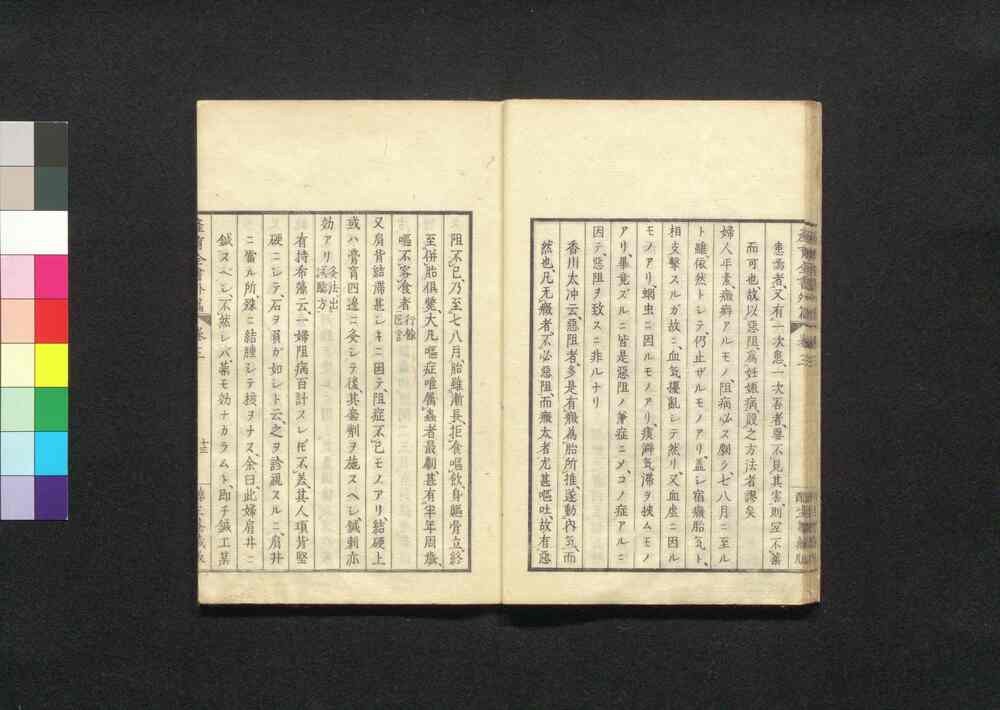 患焉者、又有一次患、一次否者、要不見其害、則窒不藥
而可也、故以惡阻爲妊娠病、設之方法者謬矣
婦人平素、癥癖アルモノ、阻病必ス劇シ、七八月ニ至ル
ト雖、依然トシテ、仍止ザルモノアリ、蓋シ宿癥胎気ト、
相支撃スルガ故ニ、血気擾亂シテ然リ、又血虚ニ因ル
モノアリ、蛔虫ニ因ルモノアリ、痰澼気滞ヲ挾ムモノ
アリ、畢竟ズルニ、皆是惡阻ノ兼症ニメ、コノ症アルニ
因テ、惡阻ヲ致スニ非ルナリ
香川太冲云、惡阻者、多是有癥、爲胎所推、遂動内気、而
然也、凡无癥者、不必惡阻、而癥大者尤甚嘔吐、故有惡
阻不已、乃至七八月、胎雖漸長、拒食嘔飲、身軀骨立、終
至併胎倶斃、大凡嘔症唯屬蟲者最劇、甚有半年周歳、
嘔不容食者 行餘医言
又肩背結滞甚シキニ因テ、阻症不已モノアリ、結硬上
或ハ膏肓四邉ニ灸シテ後、其套劑ヲ施スヘシ、鍼刺亦
効アリ 灸法出試驗方
有持布藻云、一婦阻病百計スレ𪜈不差、其人項背堅
硬ニシテ、石ヲ負ガ如シト云、之ヲ診視スルニ、肩井
ニ當ル所、殊ニ結腫シテ核ヲナス、余曰、此婦肩井ニ
鍼スベシ、不然レバ薬モ効ナカラムト、即チ鍼工某
産育全書外篇 卷三
十三